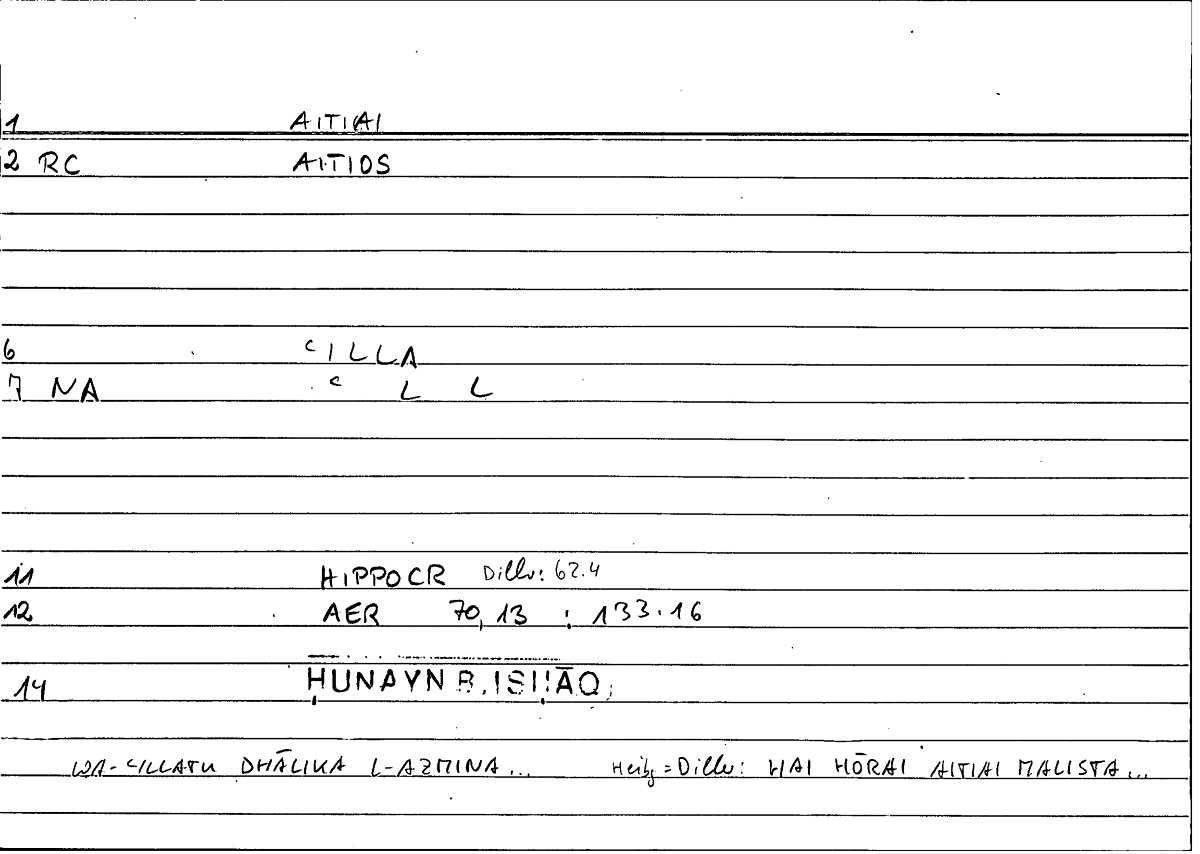 1 AITIAI
2 RC AITIOS
6 ʿILLA
7 NA ʿ L L
11 HIPPOCR Diller: 62.4
12 AER 70,13 : 133.16
14 ḤUNAYN B. ISḤĀQ
WA-ʿILLATU DHĀLIKA L-AZMINA... Heibg = Diller: HAI HŌRAI AITIAI MALISTA...